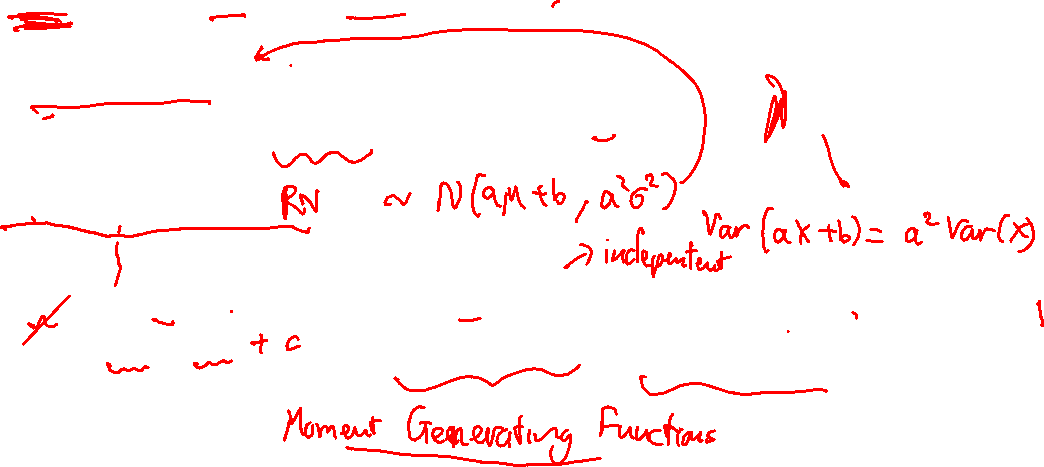 RN ~ N(aμ+b, a²σ²)
Var(aX+b) = a² Var(X)
→ indepentent
+ c
Moment Generating Functions